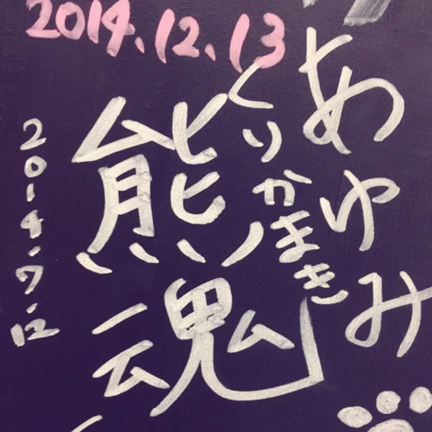 2014.12.13
あゆみ
くりかまき
熊魂
2014.7.12